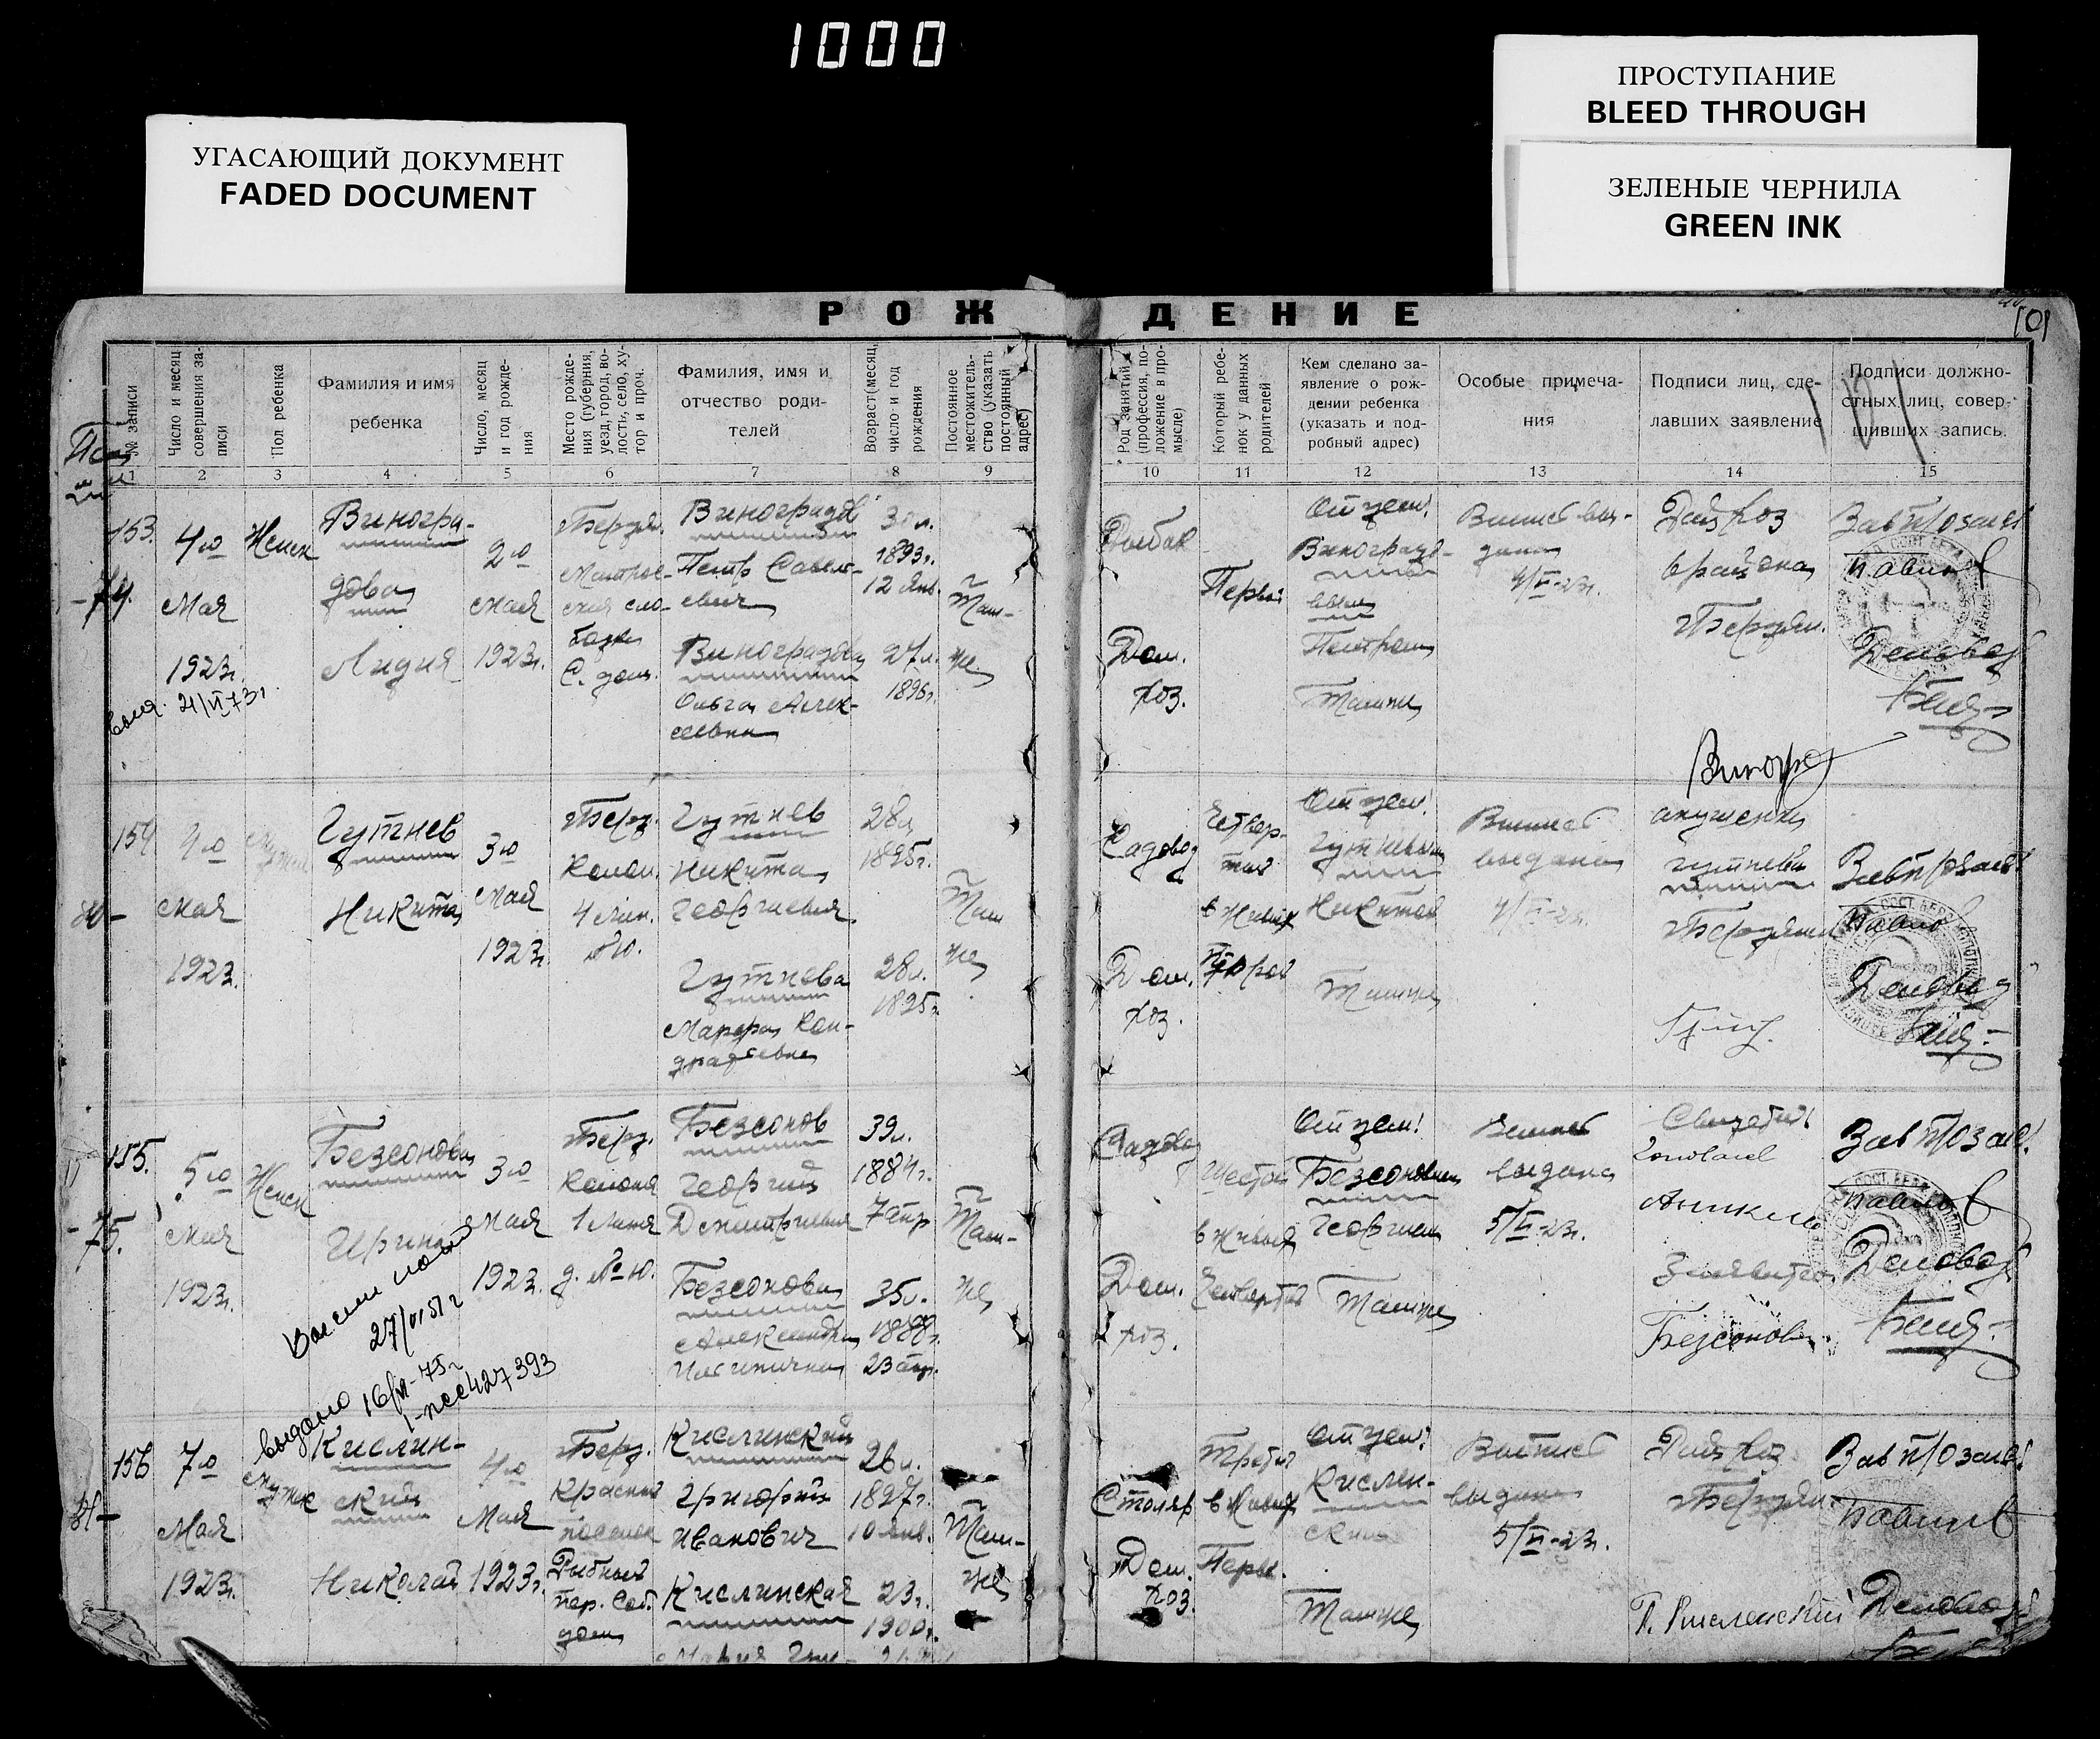 1000
УГАСАЮЩИЙ ДОКУМЕНТ
FADED DOCUMENT
ПРОСТУПАНИЕ
BLEED THROUGH
ЗЕЛЕНЫЕ ЧЕРНИЛА
GREEN INK
РОЖДЕНИЕ
101
№ записи
Число и месяц
совершения за-
писи
Пол ребенка
Фамилия и имя
ребенка
Число, месяц
и год рожде-
ния
Место рожде-
ния (губерния,
уезд, город, во-
лость, село, ху-
тор и проч.
Фамилия, имя и
отчество роди-
телей
Возраст (месяц,
число и год
рождения
Постоянное
местожитель-
ство (указать
постоянный
адрес)
Род занятий
(профессия, по-
ложение в про-
мысле)
Который ребе-
нок у данных
родителей
Кем сделано за-
явление о рож-
дении ребенка
(указать и под-
робный адрес)
Особые примеча-
ния
Подписи лиц, сде-
лавших заявление
Подписи должно-
стных лиц, совер-
шивших запись.
1 2 3 4 5 6 7 8 9 10 11 12 13 14 15
153.
74.
4го
Мая
1923г.
Женск
Виногра-
дова
Лидия
2го
мая
1923г.
Бердян.
С. дом.
Виноградов
Петр Савель-
евич
Виноградова
Ольга Алек-
сеевна
30 л.
1893г.
12 Янв.
27 л.
1896г.
Там-
же
Рыбак
Дом.
хоз.
Первый
Отцем
Виноградо-
вым
Петром
Тамже
Выпись вы-
дана
4/VI-23г.
Бердян.
Завподзагс
Павлов
Деловод
154
80-
4го
мая
1923.
Гутнев
Никита
3го
Мая
1923г.
Берд.
Колон.
4 лин.
Гутнев
Никита
Георгиевич
Гутнева
Марфа Кон-
дратьевна
28 л.
1895г.
28 л.
1895г.
Там
же
Садовод
Дом.
хоз.
Четвер-
тый
в живых
Отцем
Гутневым
Никитой
Тамже
Выпись
выдана
4/VI-23г.
акушерка
Гутнева
Бердянск
Завподзагс
Павлов
Деловод
155.
75.
5го
мая
1923г.
Женск
Безсонова
Ирина
3го
мая
1923г.
Берд.
Колония
1 Линия
Безсонов
Георгий
Дмитриевич
Безсонова
Александра
39 л.
1884г.
7 апр
35 л.
1888г.
23 апр.
Там-
же
Садовод
Дом.
хоз.
Шестой
в живых
Четвертый
Отцем
Безсоновым
Георгием
Тамже
Выпись
выдана
5/VI-23г.
Безсонов
Завподзагс
Павлов
Деловод
выдано 16/VI-75г
427393
156
81-
7го
Мая
1923г.
Мужск
Кислин-
ский
Николай
4го
Мая
1923г.
Берд.
Красный
поселок
Рыбный
пер. Соб.
дом
Кислинский
Григорий
Иванович
Кислинская
26 л.
1897г.
10 Янв.
23 г.
1900г.
Там-
же
Столяр
Дом.
хоз.
Третий
в живых
Первый
Отцем
Кислин-
ским
Тамже
Выпись
выдана
5/VI-23г.
Бердян.
Г. Кислинский
Завподзагс
Павлов
Деловод